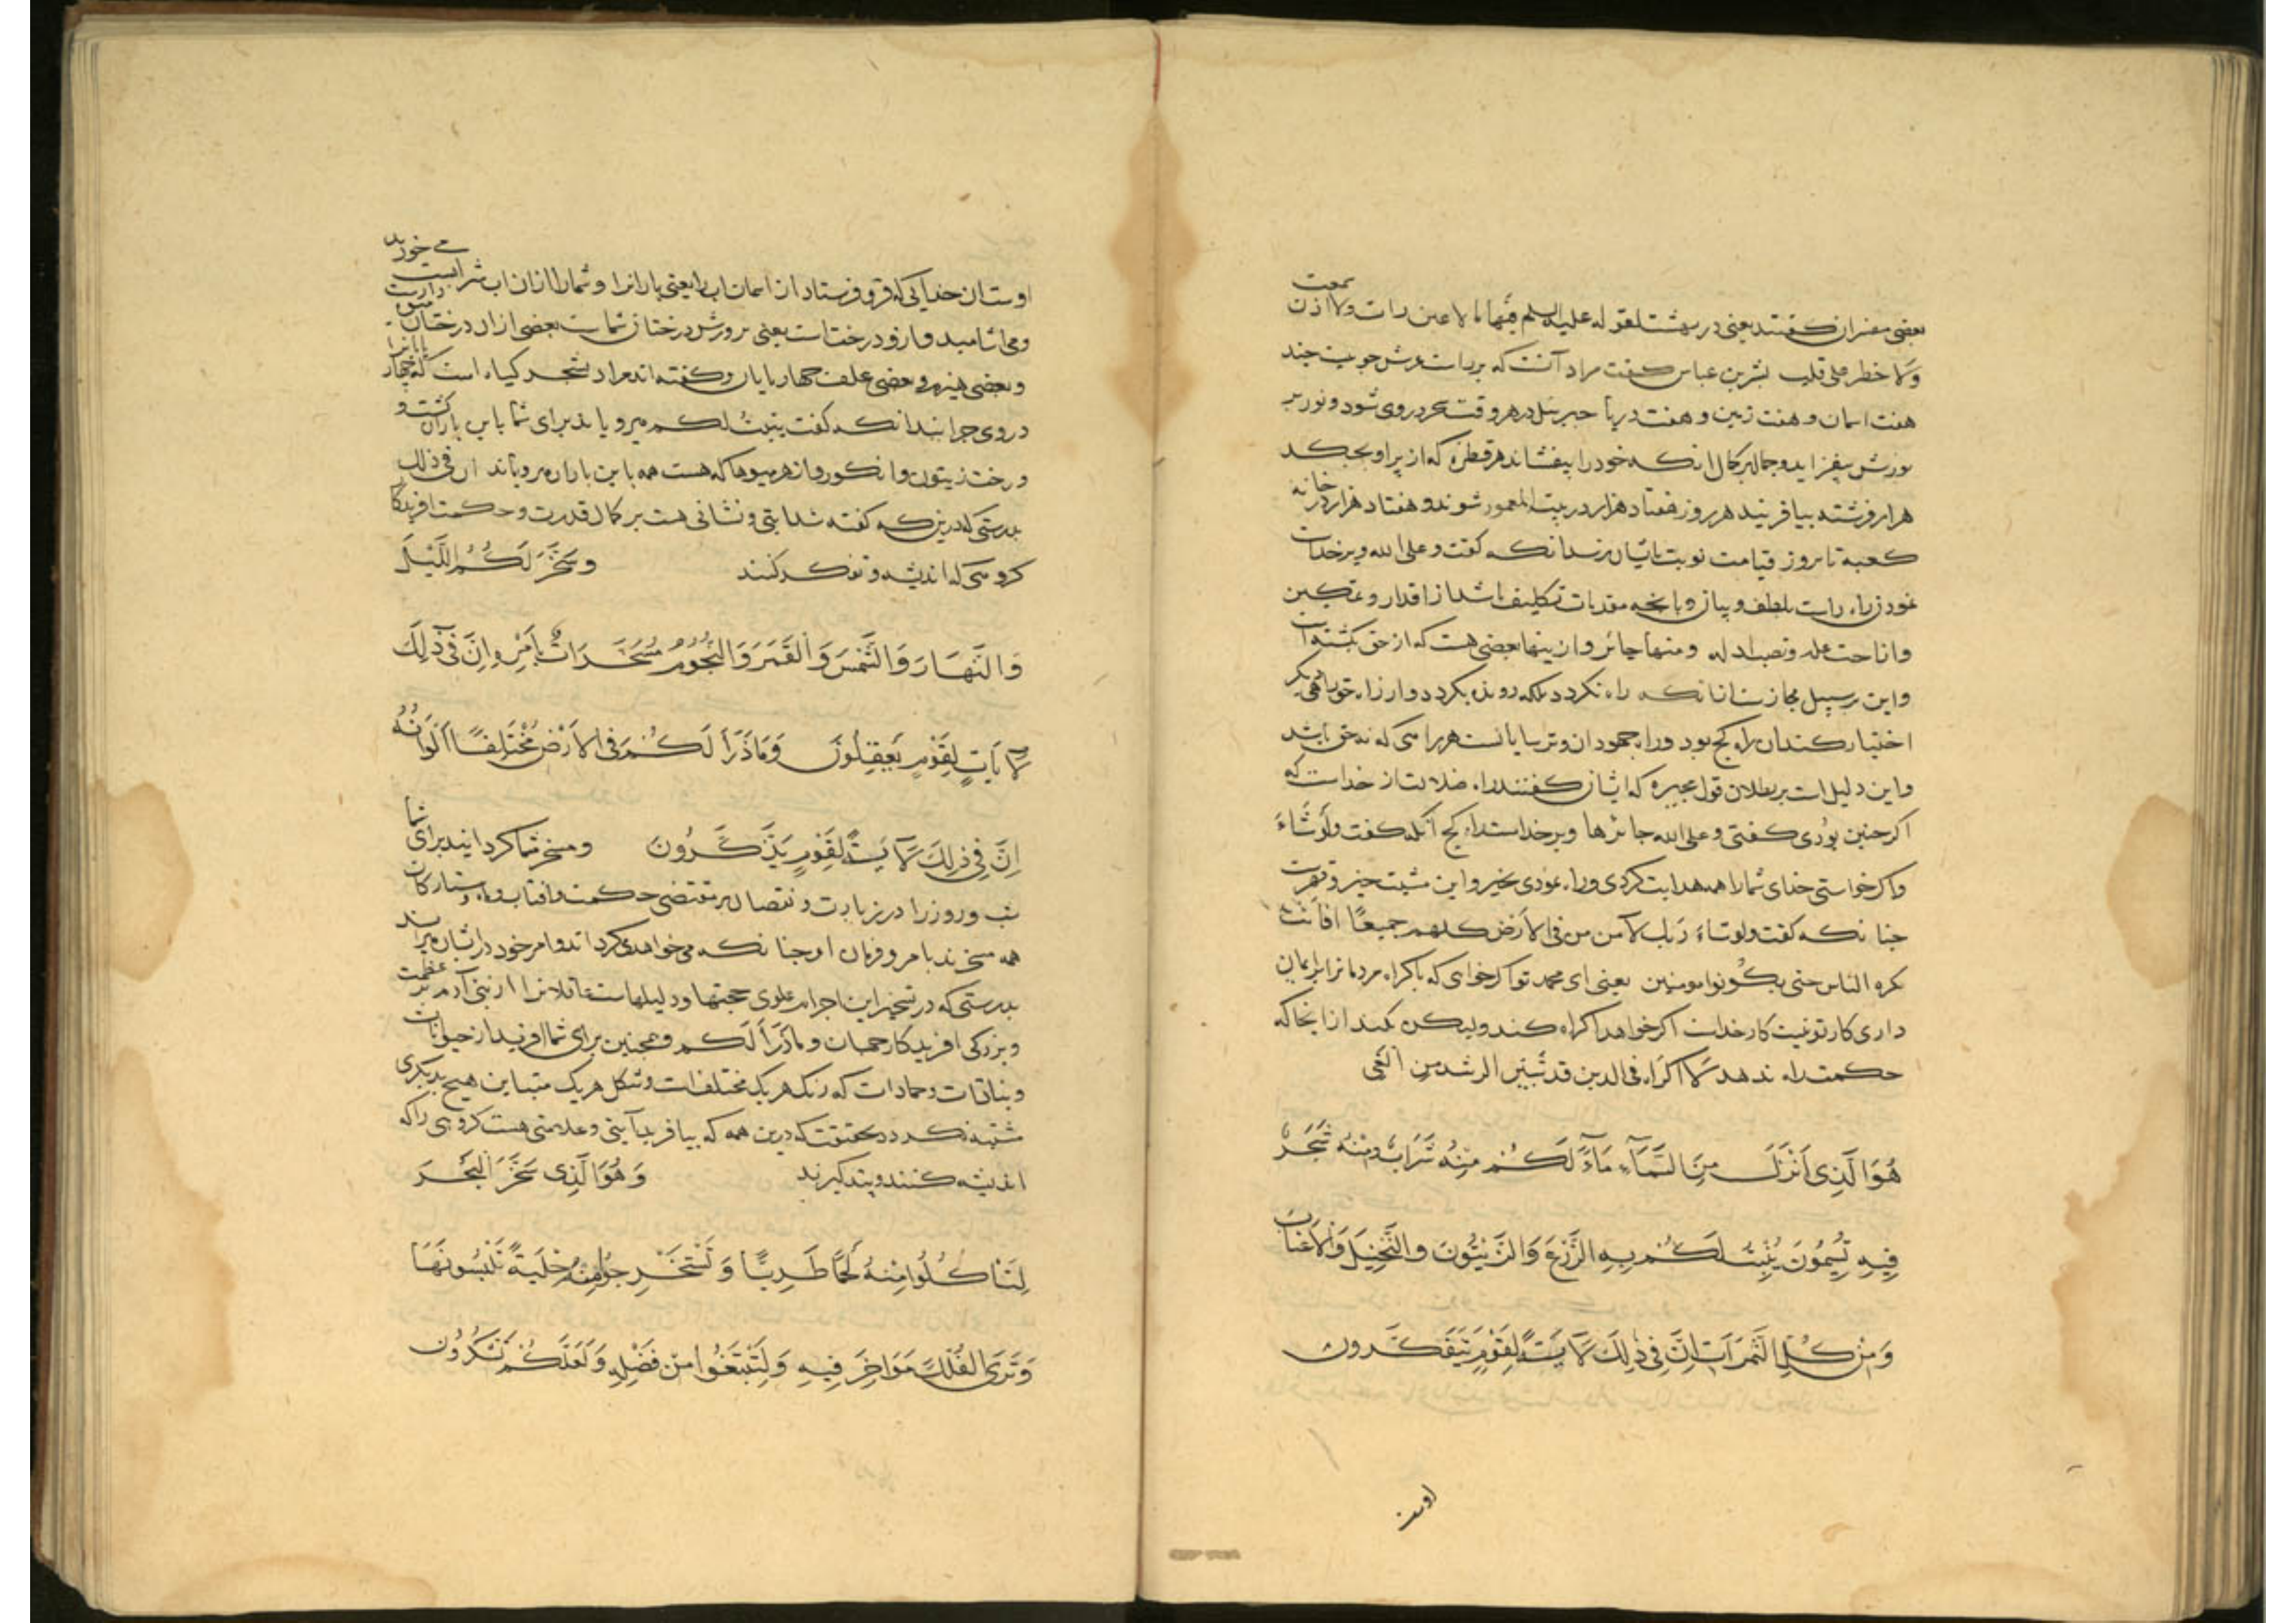 بعضی مفسران کفتند یعنی در بهشت لقوله علیه السلم فیها ما لا عین رات ولا اذن سمعت
ولا خطر علی قلب بشر بن عباس کفت مراد آنست که بر راست عرش جویبست چند
هفت اسمان و هفت زمین و هفت دریا جبرئیل در هر وقت سحر در وی شود و نور بر
نورش بیفزاید و جمال بر کمال انکه خود را بیفشاند هر قطره که از پر او بچکد
هزار فرشته بیافرینند هر روز هفتاد هزار در بیت المعمور شوند و هفتاد هزار در خانه
کعبه تا بروز قیامت نوبت بایشان نرسد انکه کفت و علی الله و بر خداست
نمودن راه راست بلطف و بیان و بانچه مقدمات تکلیف باشد از اقدار و تمکین
وازاحت عله و نصب ادله ومنها جائر وازینها بعضی هست که از حق بکشته است
واین بر سبیل مجازست انکه راه نکردد بلکه رونده بکردد واز راه حق راهی دیکر
اختیار کند ان راه کج بود و راه جهودان و ترسایانست هر راهی که نه حق باشد
واین دلیل است بر بطلان قول مجبره که ایشان کفتند راه ضلالت از خداست که
اکر چنین بودی کفتی و علی الله جائرها و بر خداست راه کج انکه کفت ولو شاء
واکر خواستی خدای شما را همه هدایت کردی و راه نمودی بخیر واین مشیت جبر و قهرست
چنانکه کفت ولو شاء ربک لآمن من فی الارض کلهم جمیعا افانت
تکره الناس حتی یکونوا مومنین یعنی ای محمد تو اکر خواهی که باکراه مردمانرا بر ایمان
داری کار تو نیست کار خداست اکر خواهد اکراه کند ولیکن نکند از انجا که
حکمت راه ندهد لا اکراه فی الدین قد تبین الرشد من الغی
هُوَ الَّذِی اَنْزَلَ مِنَ السَّمَآءِ مَآءً لَکُمْ مِنْهُ شَرَابٌ وَمِنْهُ شَجَرٌ
فِیهِ تُسِیمُونَ یُنْبِتُ لَکُمْ بِهِ الزَّرْعَ وَالزَّیْتُونَ وَالنَّخِیلَ وَالْاَعْنَابَ
وَمِنْ کُلِّ الثَّمَرَاتِ اِنَّ فِی ذٰلِکَ لَآیَةً لِقَوْمٍ یَتَفَکَّرُونَ
اوست
اوست ان خدایی که فرو فرستاد از اسمان اب را یعنی بارانرا و شما را ازان اب شرابست می خورید
ومی اشامید وازو درختاست یعنی پرورش درختان شماست بعضی ازان درختان میوه دارست
و بعضی هیزم و بعضی علف چهار پایان و کفته اند مراد بشجر کیاه است که چهار پایانرا
در وی چرانید انکه کفت ینبت لکم می رویاند برای شما باین باران کشت و
درخت زیتون و انکور و از هر میوها که هست همه باین باران می رویاند ان فی ذلک
بدرستی که درین که کفته شد ایتی و نشانی هست بر کمال قدرت و حکمت افریدکار
کروهی که اندیشه و تفکر کنند وَسَخَّرَ لَکُمُ اللَّیْلَ
وَالنَّهَارَ وَالشَّمْسَ وَالْقَمَرَ وَالنُّجُومُ مُسَخَّرَاتٌ بِاَمْرِهِ اِنَّ فِی ذٰلِکَ
لَآیَاتٍ لِقَوْمٍ یَعْقِلُونَ وَمَا ذَرَاَ لَکُمْ فِی الْاَرْضِ مُخْتَلِفًا اَلْوَانُهُ
اِنَّ فِی ذٰلِکَ لَآیَةً لِقَوْمٍ یَذَّکَّرُونَ ومسخر شما کردانید برای شما
شب و روز را در زیادت و نقصان بر مقتضی حکمت وافتاب و ماه و ستارکان
همه مسخرند بامر و فرمان او چنانکه می خواهد می کرداند و امر خود در ایشان می راند
بدرستی که در تسخیر این اجرام علوی حجتها و دلیلهاست عاقلانرا از بنی آدم بر عظمت
و بزرکی افریدکار جهان وما ذرا لکم و همچنین برای شما افرید از حیوانات
و نباتات و جمادات که رنک هر یک مختلف است و شکل هر یک متباین هیچ بدیکری
مشتبه نکردد بحقیقت که درین همه که بیافرید آیتی و علامتی هست کروهی را که
اندیشه کنند و پند کیرند وَهُوَ الَّذِی سَخَّرَ الْبَحْرَ
لِتَاْکُلُوا مِنْهُ لَحْمًا طَرِیًّا وَتَسْتَخْرِجُوا مِنْهُ حِلْیَةً تَلْبَسُونَهَا
وَتَرَی الْفُلْکَ مَوَاخِرَ فِیهِ وَلِتَبْتَغُوا مِنْ فَضْلِهِ وَلَعَلَّکُمْ تَشْکُرُونَ